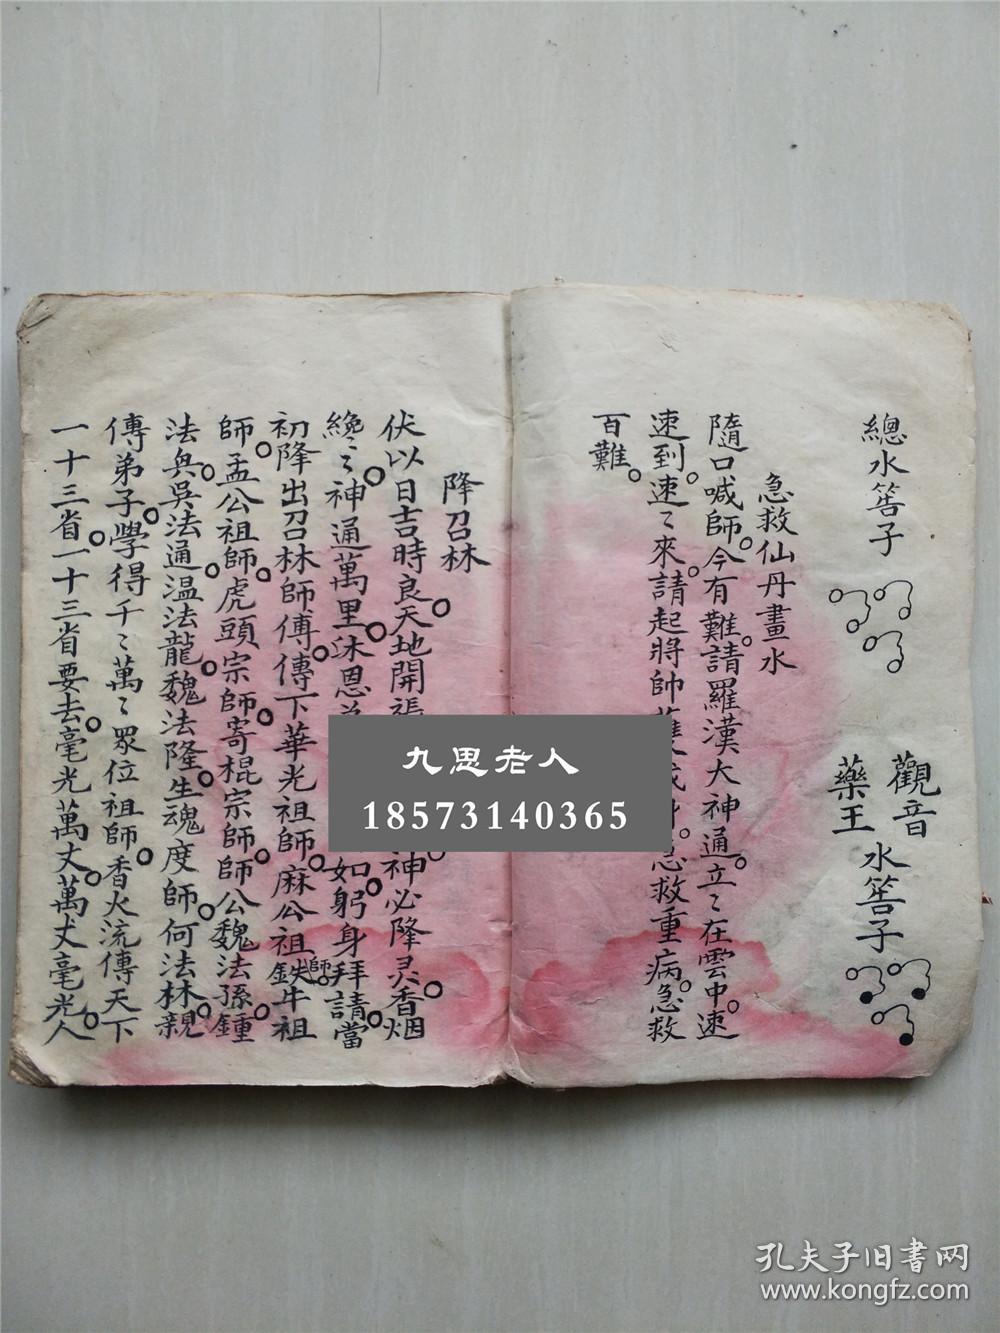 總水筶子
觀音
藥王
水筶子
急救仙丹畫水
隨口喊師。今有難。請羅漢大神通。立〻在雲中。速
速到。速〻來。請起將帥
急救重病。急救
百難。
降召林
伏以日吉時良。天地開張
神必降灵。香烟
纔〻。神通萬里。沐恩弟
如。躬身拜請。當
初降出召林師傅。傳下華光祖師。麻公祖師。鉄牛祖
師。孟公祖師。虎頭宗師。寄棍宗師。師公魏法孫。鍾
法兵。吳法通。温法龍。魏法隆。生魂度師。何法林。親
傳弟子。學得千〻萬〻。眾位祖師。香火流傳天下
一十三省。一十三省要去。毫光萬丈。萬丈毫光。人
九思老人
18573140365
孔夫子旧書网
www.kongfz.com